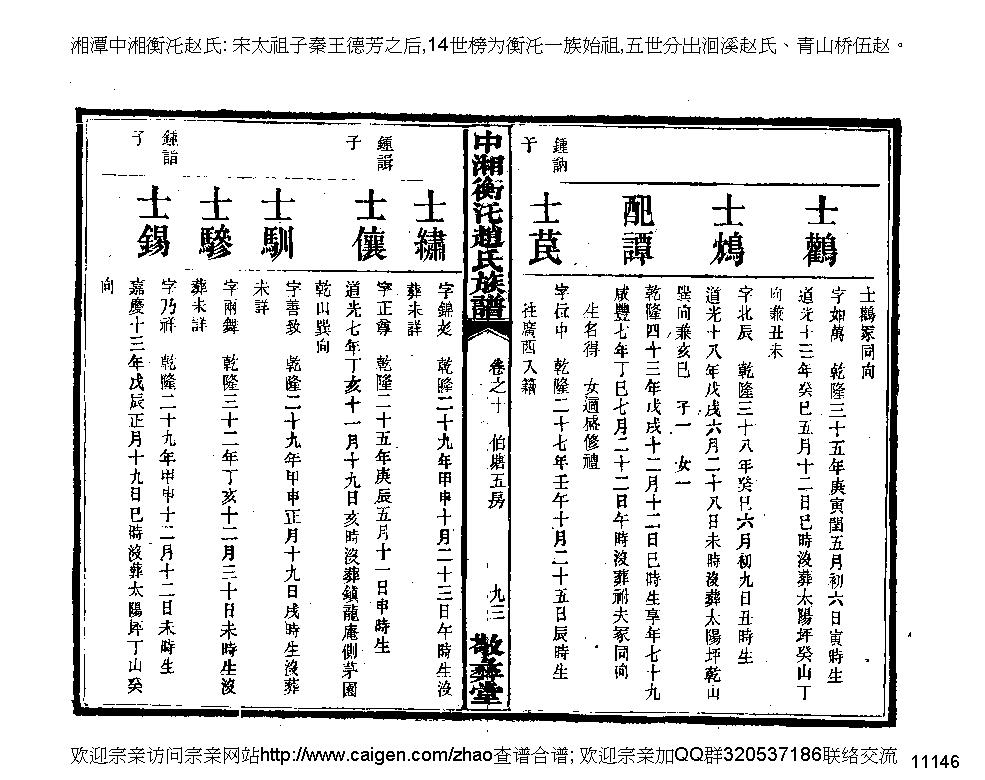 湘潭中湘衡沱赵氏: 宋太祖子秦王德芳之后,14世榜为衡沱一族始祖,五世分出泂溪赵氏、青山桥伍赵。
士鸛冢同向
士鸛
字如萬 乾隆三十五年庚寅閏五月初六日寅時生
道光十三年癸巳五月十二日巳時沒葬太陽坪癸山丁
向兼丑未
士鴆
字北辰 乾隆三十八年癸巳六月初九日丑時生
道光十八年戊戌六月二十八日未時沒葬太陽坪乾山
巽向兼亥巳 子一 女一
配譚
乾隆四十三年戊戌十二月十二日巳時生享年七十九
咸豐七年丁巳七月二十二日午時沒葬祔夫冢同向
生名得 女適盛修禮
鍾訥
子
士芪
字位中 乾隆二十七年壬午十月二十五日辰時生
往廣西入籍
中湘衡沱趙氏族譜
卷之十 伯塘五房
九三
敬彝堂
士繡
字錦奀 乾隆二十九年甲申十月二十三日午時生沒
葬未詳
鍾諿
子
士儴
字正尊 乾隆二十五年庚辰五月十一日申時生
道光七年丁亥十一月十九日亥時沒葬鎮龍庵側茅園
乾山巽向
士馴
字善教 乾隆二十九年甲申正月十九日戌時生沒葬
未詳
士驂
字兩舞 乾隆三十二年丁亥十二月三十日未時生沒
葬未詳
鍾詣
子
士錫
字乃祥 乾隆二十九年甲申十二月十二日未時生
嘉慶十三年戊辰正月十九日巳時沒葬太陽坪丁山癸
向
欢迎宗亲访问宗亲网站http://www.caigen.com/zhao查谱合谱; 欢迎宗亲加QQ群320537186联络交流
11146